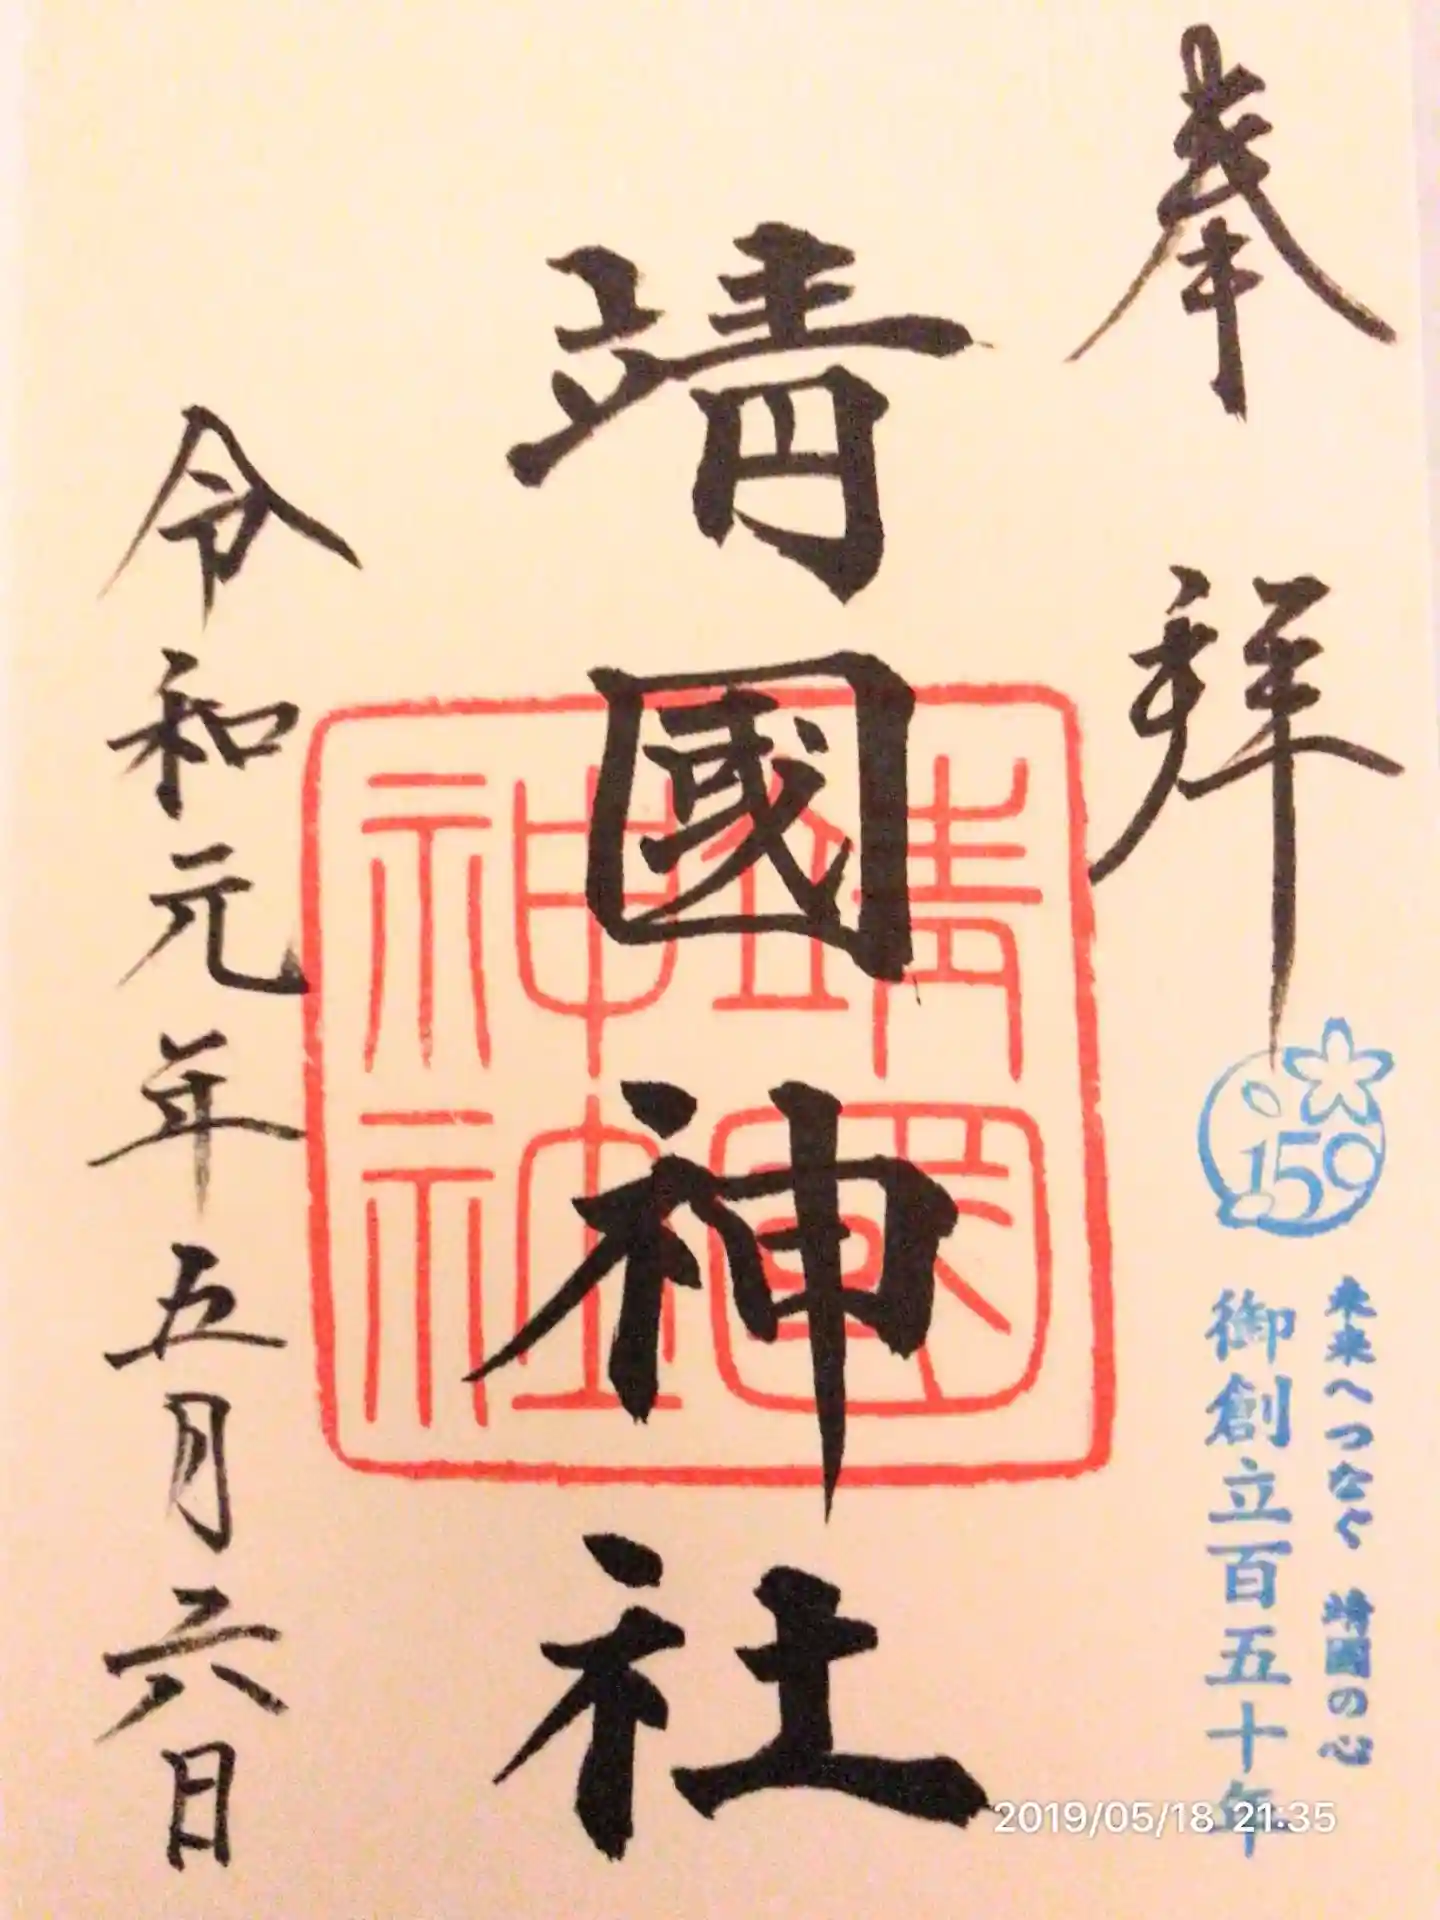 奉拜
159
未来へつなぐ 靖國の心
御創立百五十年
靖國神社
靖國
神社
令和元年五月六日
2019/05/18 21:35